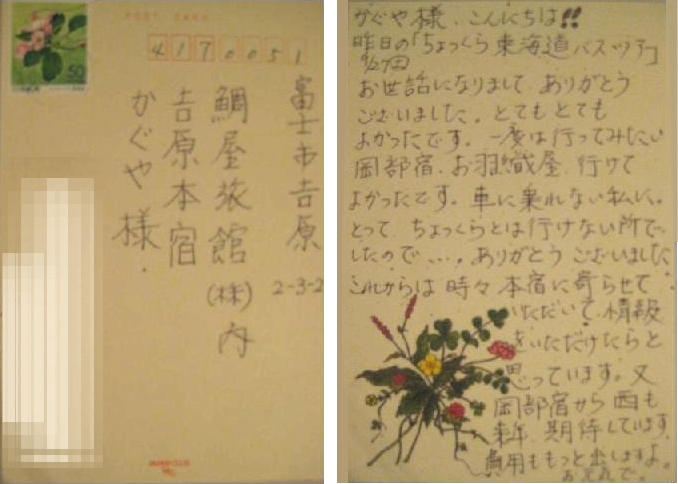 50
4170051
富士市吉原
2-3-2
鯛屋旅館(株)内
吉原本宿
かぐや様
かぐや様、こんにちは!!
昨日の「ちょっくら東海道バスツアー」
9/27回
お世話になりまして、ありがとう
ございました。とてもとても
よかったです。一度は行ってみたい
岡部宿、お羽織屋、行けて
よかったです。車に乗れない私に、
とって、ちょっくらとは行けない所で
したので…。ありがとうございました
これからは時々本宿に寄らせて
いただいて、情報
をいただけたらと
思っています。又
岡部宿から西も
来年、期待しています。
費用ももっと出しますよ。
お元気で。